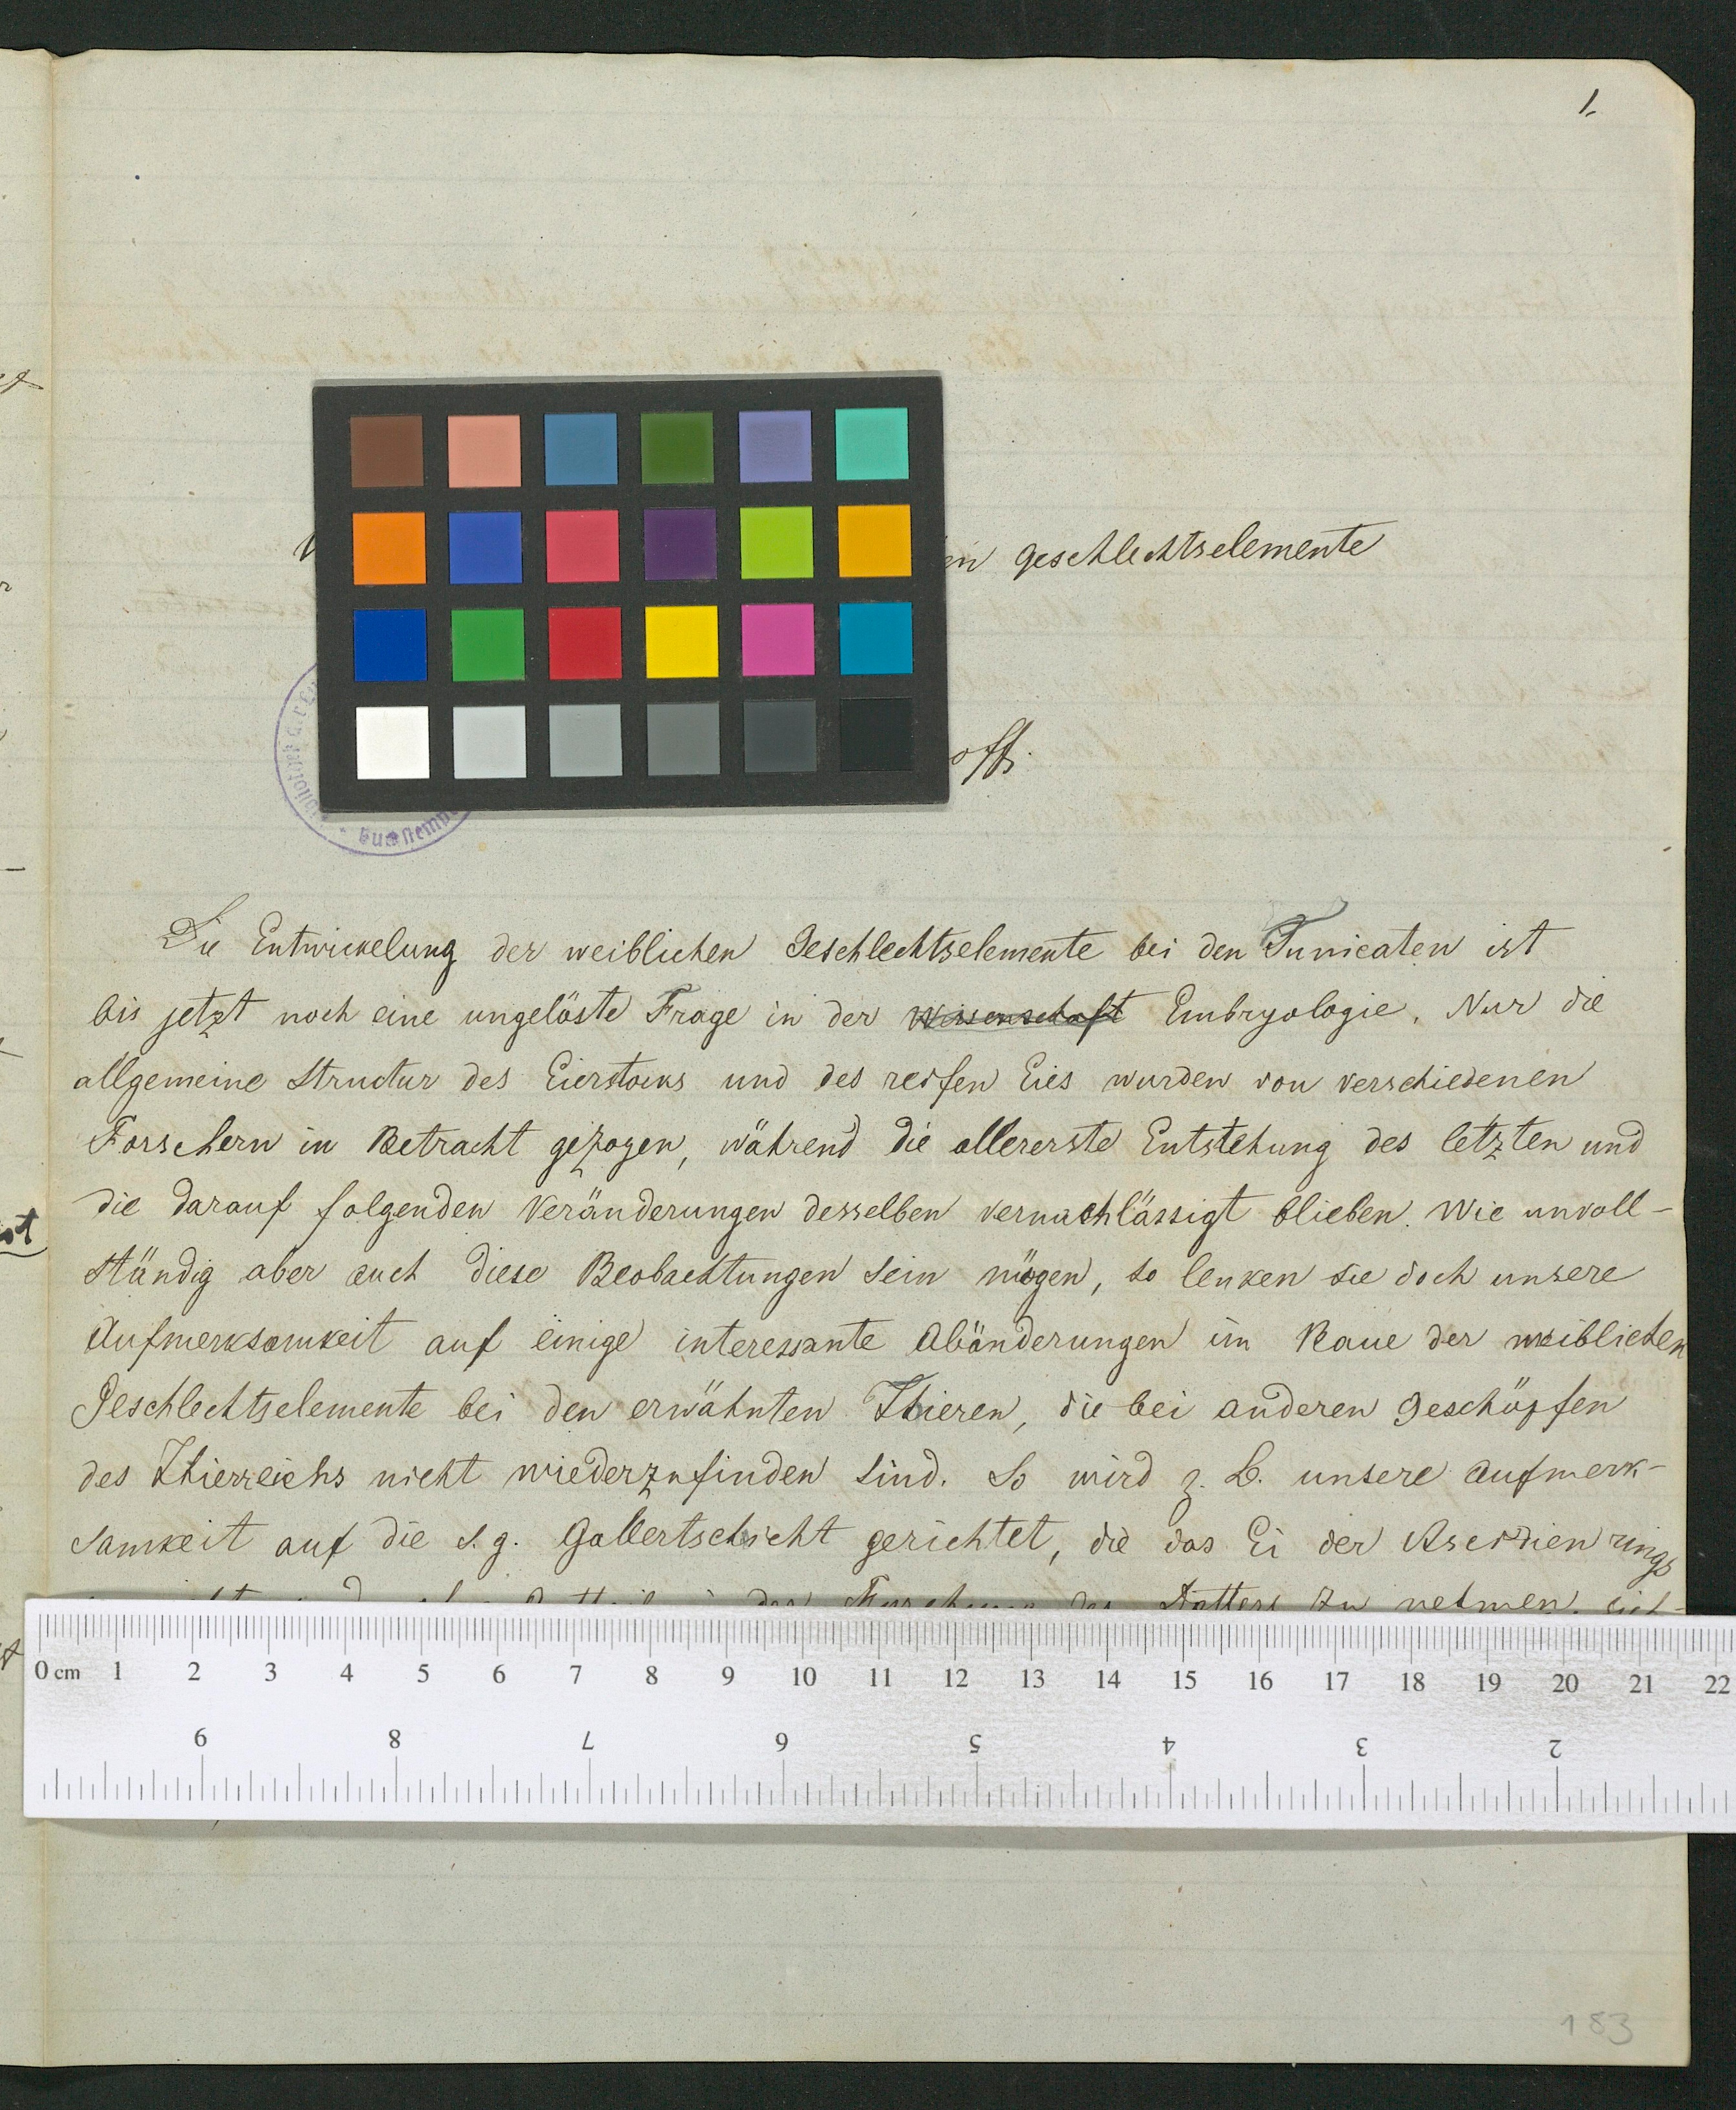 1.
geschlechtselemente
off.
Die Entwickelung der weiblichen Geschlechtselemente bei den Tunicaten ist
bis jetzt noch eine ungelöste Frage in der Wissenschaft Embryologie. Nur die
allgemeine Structur des Eierstocks und des reifen Eies wurden von verschiedenen
Forschern in Betracht gezogen, während die allererste Entstehung des letzten und
die darauf folgenden Veränderungen desselben vernachlässigt blieben. Wie unvoll-
ständig aber auch diese Beobachtungen sein mögen, so lenken sie doch unsere
Aufmerksamkeit auf einige interessante Abänderungen im Baue der weiblichen
Geschlechtselemente bei den erwähnten Thieren, die bei anderen Geschöpfen
des Thierreichs nicht wiederzufinden sind. So wird z. B. unsere Aufmerk-
samkeit auf die s. g. Gallertschicht gerichtet, die das Ei der Ascidien rings
der Furchung des Dotters zu nehmen.
0 cm 1 2 3 4 5 6 7 8 9 10 11 12 13 14 15 16 17 18 19 20 21 22
8 7 6 5 4 3 2
183